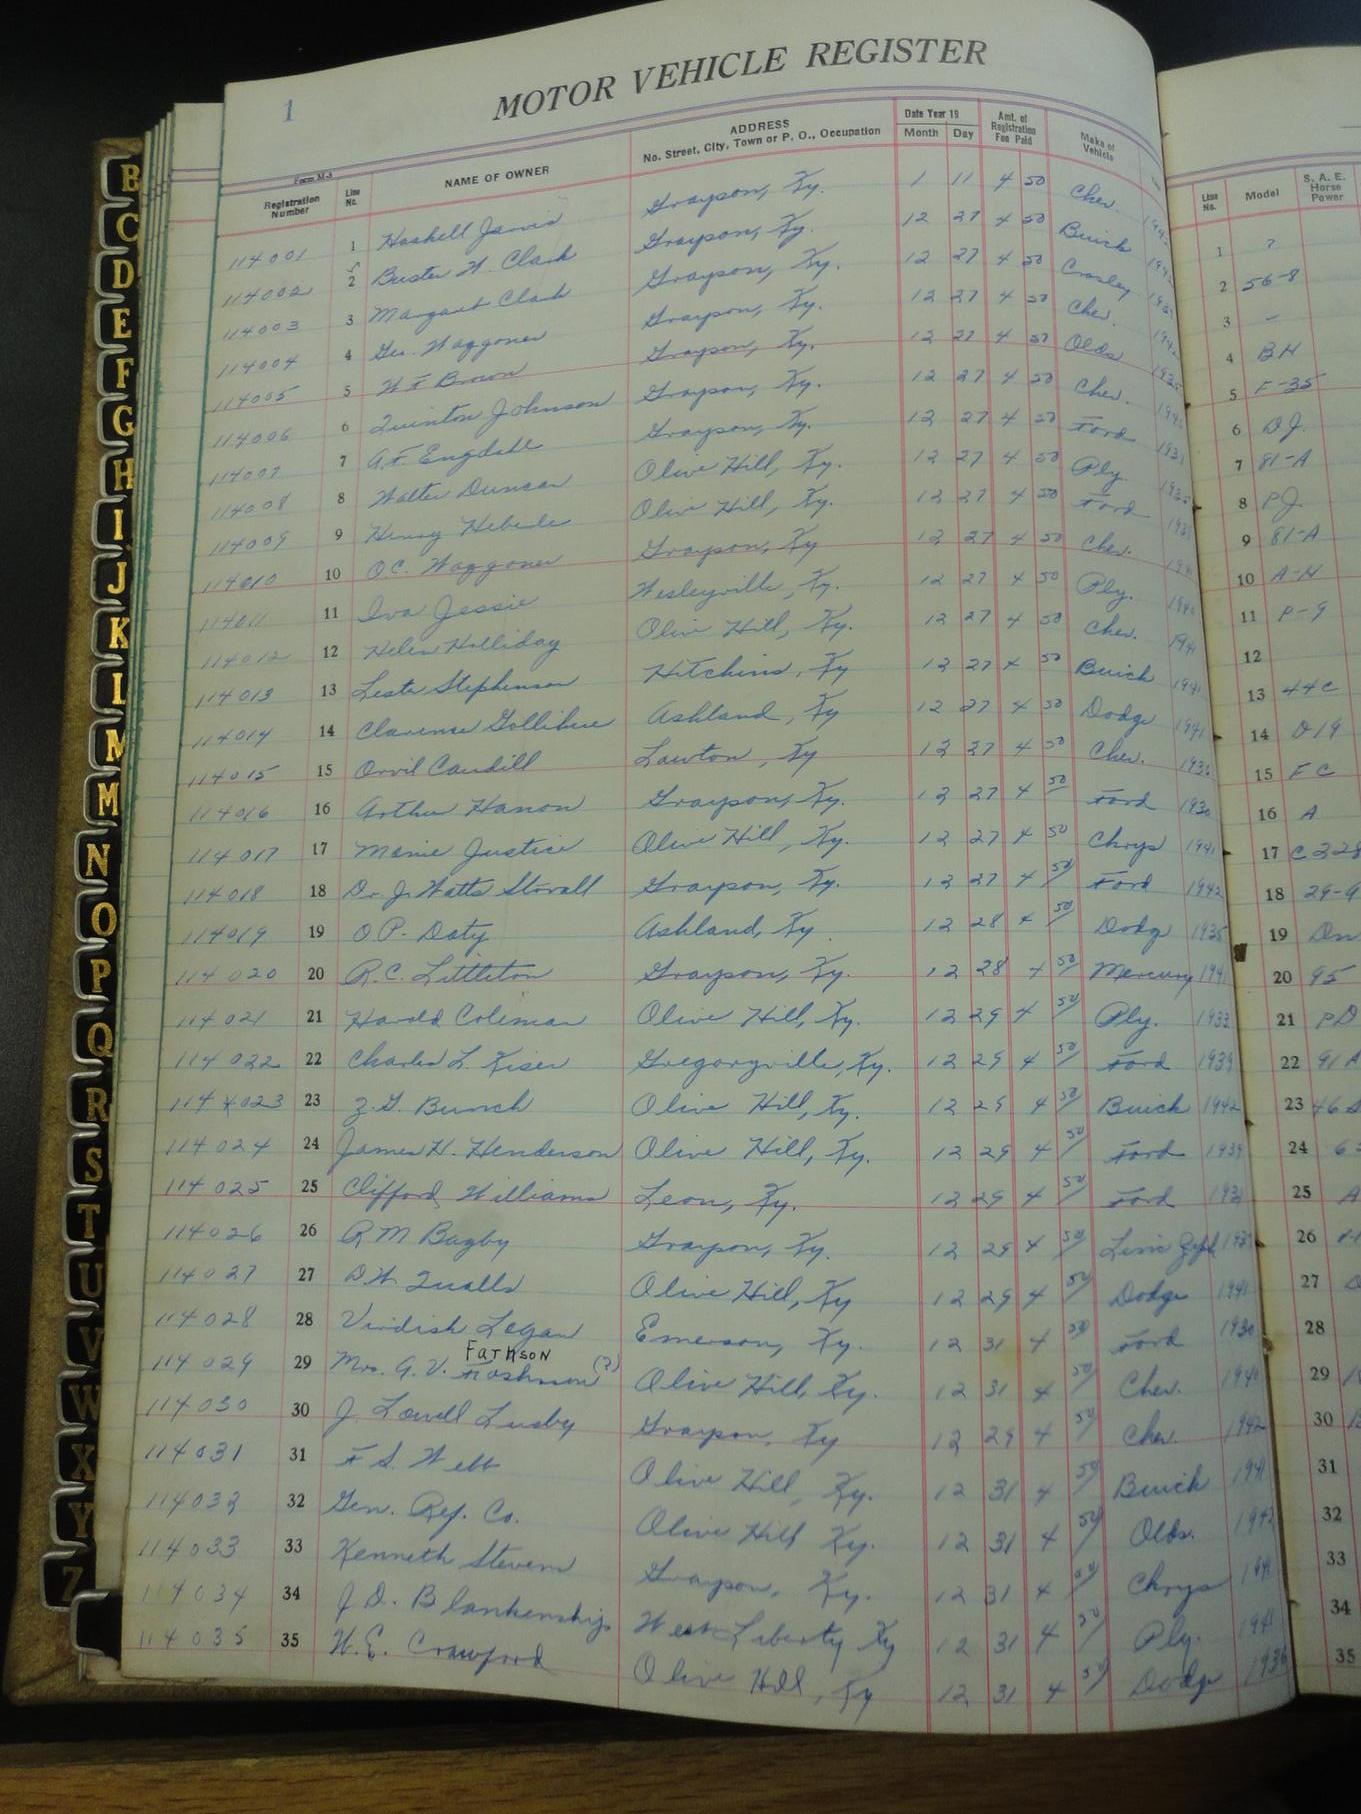 1
MOTOR VEHICLE REGISTER
Form M-3
Registration Number Line No. NAME OF OWNER ADDRESS No. Street, City, Town or P. O., Occupation Date Year 19 Month Day Amt. of Registration Fee Paid Make of Vehicle Line No. Model S. A. E. Horse Power
114001 1 Haskell Jarvis Grayson, Ky. 1 11 4 50 Chev. 1 ?
114002 2 Buster W. Clark Grayson, Ky. 12 27 4 50 Buick 2 56-8
114003 3 Margaret Clark Grayson, Ky. 12 27 4 50 Crosley 3 -
114004 4 Geo. Waggoner Grayson, Ky. 12 27 4 50 Chev. 4 BH
114005 5 W F Brown Grayson, Ky. 12 27 4 50 Olds 1935 5 F-35
114006 6 Quinton Johnson Grayson, Ky. 12 27 4 50 Chev. 6 DJ.
114007 7 A.F. Engdell Grayson, Ky. 12 27 4 50 Ford 7 81-A
114008 8 Walter Duncan Olive Hill, Ky. 12 27 4 50 Ply. 1935 8 PJ.
114009 9 Henry Heberle Olive Hill, Ky. 12 27 4 50 Ford 9 81-A
114010 10 O.C. Waggoner Grayson, Ky 12 27 4 50 Chev. 1941 10 A-H
114011 11 Iva Jessie Wesleyville, Ky. 12 27 4 50 Ply. 1940 11 P-9
114012 12 Helen Holliday Olive Hill, Ky. 12 27 4 50 Chev. 1941 12
114013 13 Lester Stephenson Hitchins, Ky 12 27 4 50 Buick 1941 13 44C
114014 14 Clarence Gollihue Ashland, Ky 12 27 4 50 Dodge 1941 14 D19
114015 15 Orvil Caudill Lawton, Ky 12 27 4 50 Chev. 1936 15 FC
114016 16 Arthur Hanon Grayson, Ky. 12 27 4 50 Ford 1930 16 A
114017 17 Mamie Justice Olive Hill, Ky. 12 27 4 50 Chrys 1941 17 C 228
114018 18 Dr. J. Watts Stovall Grayson, Ky. 12 27 4 50 Ford 1942 18 29-
114019 19 O.P. Daty Ashland, Ky. 12 28 4 50 Dodge 1935 19
114020 20 R.C. Littleton Grayson, Ky. 12 28 4 50 Mercury 1941 20 95
114021 21 Harold Coleman Olive Hill, Ky. 12 29 4 50 Ply. 1933 21 PD
114022 22 Charles L. Kiser Gregoryville, Ky. 12 29 4 50 Ford 1939 22 91A
114023 23 Z.G. Bunch Olive Hill, Ky. 12 29 4 50 Buick 1942 23 46
114024 24 James H. Henderson Olive Hill, Ky. 12 29 4 50 Ford 1939 24 6
114025 25 Clifford Williams Leon, Ky. 12 29 4 50 Ford 1931 25 A
114026 26 R M Bagby Grayson, Ky. 12 29 4 50 Linc Zeph 1937 26
114027 27 D.W. Qualls Olive Hill, Ky 12 29 4 50 Dodge 1941 27
114028 28 Virdish Logan Emerson, Ky. 12 31 4 50 Ford 1930 28
FARKSON
114029 29 Mrs. G. V. (?) Olive Hill, Ky. 12 31 4 50 Chev. 1940 29
114030 30 J. Lowell Lusby Grayson, Ky 12 29 4 50 Chev. 1942 30
114031 31 F S. Webb Olive Hill, Ky. 12 31 4 50 Buick 1941 31
114032 32 Gen. Ref. Co. Olive Hill Ky. 12 31 4 50 Olds. 1942 32
114033 33 Kenneth Stevens Grayson, Ky. 12 31 4 50 Chrys 1941 33
114034 34 J. D. Blankenship West Liberty Ky 12 31 4 50 Ply. 1941 34
114035 35 W. E. Crawford Olive Hill, Ky 12 31 4 50 Dodge 1936 35
B
C
D
E
F
G
H
I
J
K
L
M
M
N
O
P
Q
R
S
T
U
V
W
X
Y
Z